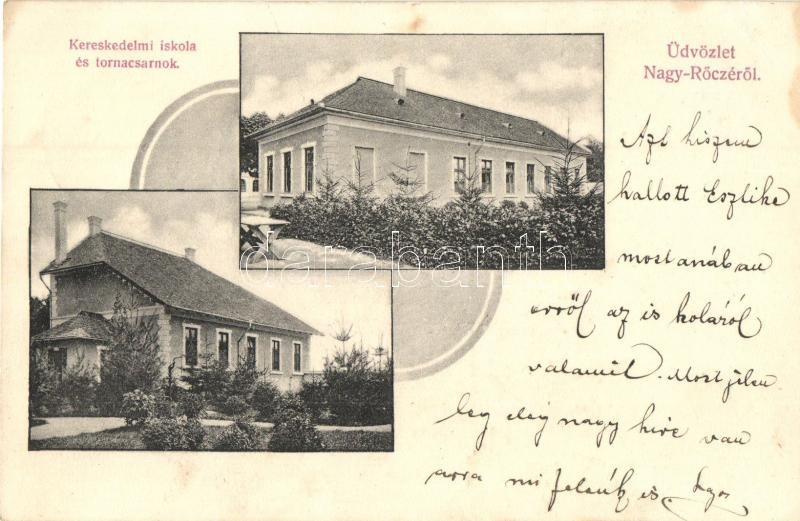 Kereskedelmi iskola
és tornacsarnok.
Üdvözlet
Nagy-Rőczéről.
Azt hiszem
hallott Eszlike
mostanában
erről az iskoláról
valamit. Most jelen
leg elég nagy hire van
arra mi felénk is.
darabanth